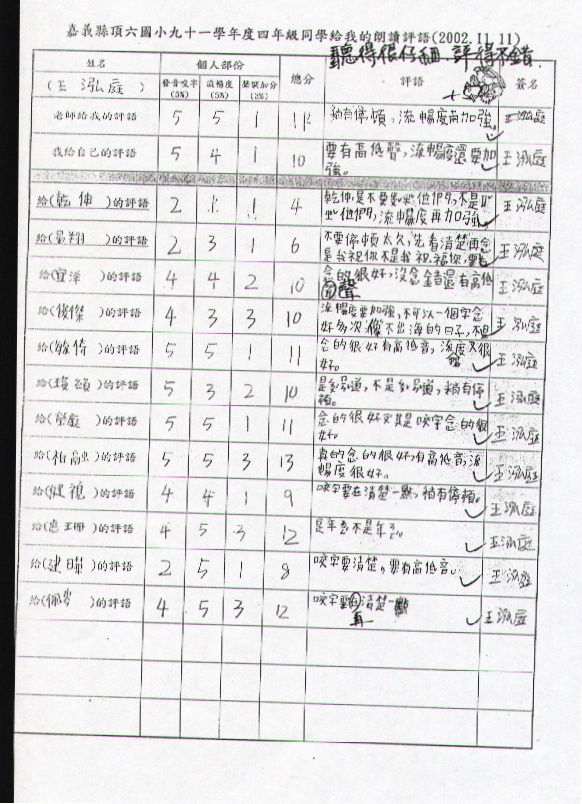 嘉義縣頂六國小九十一學年度四年級同學給我的朗讀評語(2002.11.11)
聽得很仔細.評得不錯.
姓名
(王 泓庭)
個人部份
發音咬字(5%)
流暢度(5%)
聲調加分(3%)
總分
評語
簽名
老師給我的評語 5 5 1 11 稍有停頓,流暢度再加強。 王泓庭
我給自己的評語 5 4 1 10 要有高低聲,流暢度還要加
強。 王泓庭
給(乾伸)的評語 2 1 1 4 乾伸,是不要 他們,不是
他們,流暢度再加強。 王泓庭
給( 翔)的評語 2 3 1 6 不要停頓太久,先看清楚再念
是我祝你不是我祝福你, 王泓庭
給(宜澤)的評語 4 4 2 10 念的很好,沒念錯還有高低
聲 王泓庭
給(俊傑)的評語 4 3 3 10 流暢度要加強,不可以一個字念
好多次 不出海的日子,不是 王泓庭
給( 倚)的評語 5 5 1 11 念的很好有高低音,流暢度又很
好。 王泓庭
給( )的評語 5 3 2 10 是 道,不是 道,稍有停
頓。 王泓庭
給( )的評語 5 5 1 11 念的很好尤其是咬字念的很
好。 王泓庭
給(柏 )的評語 5 5 3 13 真的念的很好,有高低音,流
暢度很好。 王泓庭
給(健 )的評語 4 4 1 9 咬字要在清楚一點,稍有停頓。 王泓庭
給(惠珊)的評語 4 5 3 12 是年 不是年 。 王泓庭
給(建 )的評語 2 5 1 8 咬字要清楚,要有高低音。 王泓庭
給(佩岑)的評語 4 5 3 12 咬字要再清楚一點 王泓庭